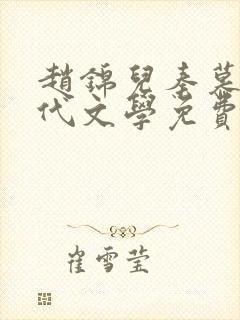 趙錦兒秦慕
代文學免費
崔雪莹